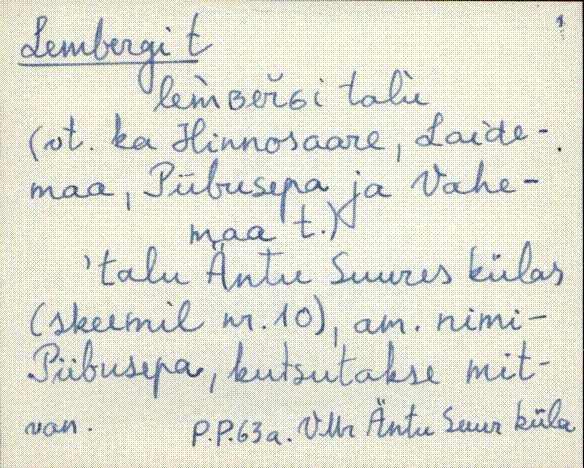 1
Lembergi t
lem̀ʙeřɢi talù
(vt. ka Hinnosaare, Laide-
maa, Piibusepa ja Vahe-
maa t.)
'talu Äntu Suures külas
(skeemil nr. 10), am. nimi-
Piibusepa, kutsutakse mit-
van.
P.P.63a. VMr Äntu Suur küla